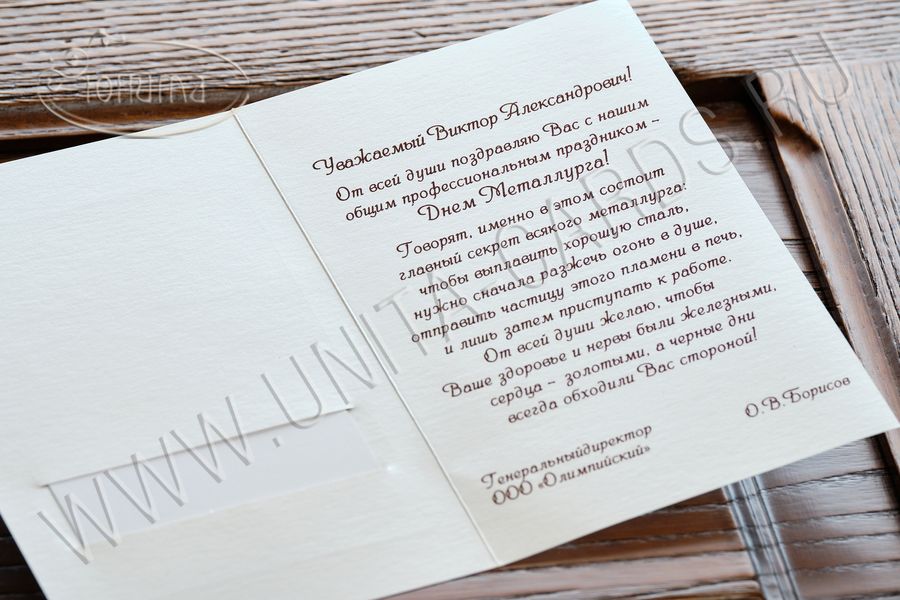 Юнита
Уважаемый Виктор Александрович!
От всей души поздравляю Вас с нашим
общим профессиональным праздником –
Днем Металлурга!
Говорят, именно в этом состоит
главный секрет всякого металлурга:
чтобы выплавить хорошую сталь,
нужно сначала разжечь огонь в душе,
отправить частицу этого пламени в печь,
и лишь затем приступать к работе.
От всей души желаю, чтобы
Ваше здоровье и нервы были железными,
сердца – золотыми, а черные дни
всегда обходили Вас стороной!
Генеральныйдиректор
ООО «Олимпийский»
О.В.Борисов
WWW.UNITA-CARDS.RU